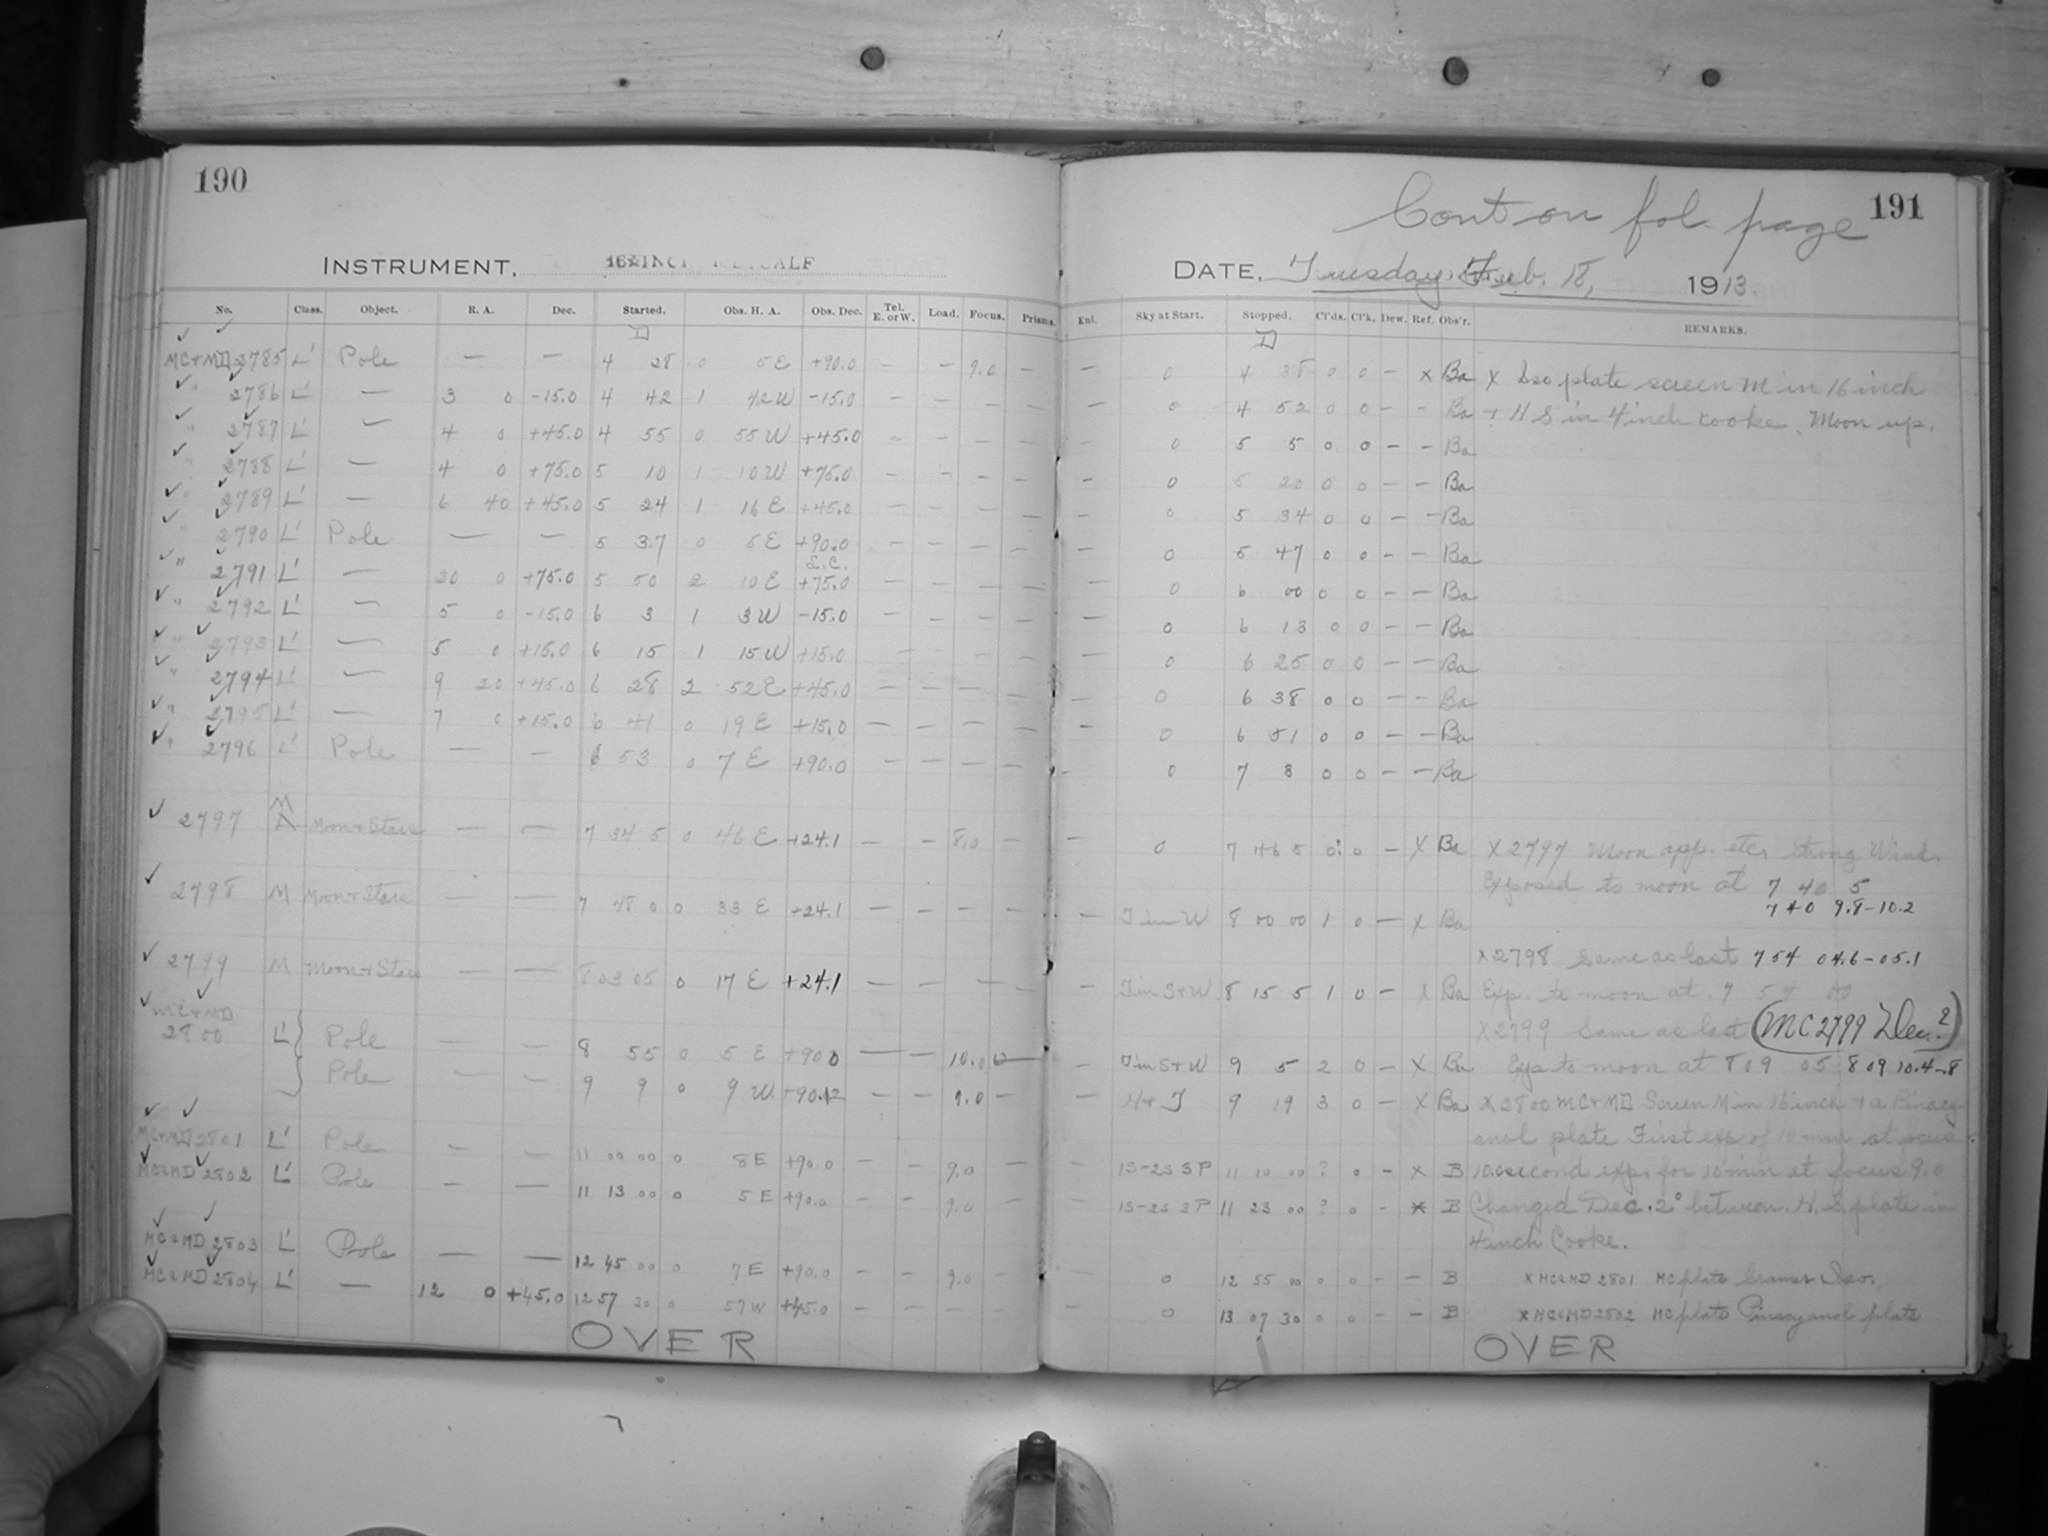 190
INSTRUMENT.
No. Class. Object. R. A. Dec. Started. Obs. H. A. Obs. Dec. Tel. E. or W. Load. Focus. Prisms.
MC+MD 2785 L' Pole — — 4 28 0 5 E +90.0 - - 9.0 -
" 2786 L' — 3 0 -15.0 4 42 1 42 W -15.0 - - - -
" 2787 L' — 4 0 +45.0 4 55 0 55 W +45.0 - - - -
" 2788 L' — 4 0 +75.0 5 10 1 10 W +75.0 - - - -
" 2789 L' — 6 40 +45.0 5 24 1 16 E +45.0 - - - -
" 2790 L' Pole — — 5 37 0 5 E +90.0 - - - -
" 2791 L' — 20 0 +75.0 5 50 2 10 E +75.0 - - - -
" 2792 L' — 5 0 -15.0 6 3 1 3 W -15.0 - - - -
" 2793 L' — 5 0 +15.0 6 15 1 15 W +15.0 - - - -
" 2794 L' — 9 20 +45.0 6 28 2 52 E +45.0 - - - -
" 2795 L' — 7 0 +15.0 6 41 0 19 E +15.0 - - - -
" 2796 L' Pole — — 6 53 0 7 E +90.0 - - - -
2797 M Moon & Stars — — 7 34 5 0 46 E +24.1 - - 8.0
2798 M Moon & Stars — — 7 48 0 0 33 E +24.1 - - - -
2799 M Moon & Stars — — 8 03 05 0 17 E +24.1 - - - -
MC+MD
2800 L' Pole — — 8 55 0 5 E +90.0 - - 10.0 -
Pole — — 9 9 0 9 W - - 9.0 -
MC+MD 2801 L' Pole — — 11 00 00 0 8 E +90.0 - - 9.0 -
MC&MD 2802 L' Pole — — 11 13 00 0 5 E +90.0 - - 9.0 -
MC&MD 2803 L' Pole — — 12 45 00 0 7 E +90.0 - - 9.0 -
MC&MD 2804 L' — 12 0 +45.0 12 57 30 0 57 W +45.0 - - - -
OVER
191
Cont on fol. page
DATE. Tuesday Feb. 18, 1913.
Enl. Sky at Start. Stopped. Cl'ds. Cl'k. Dew. Ref. Obs'r. REMARKS.
- 0 4 38 0 0 - x Ba x Iso plate screen M in 16 inch
- 0 4 52 0 0 - - Ba + H S in 4 inch Cooke. Moon up.
- 0 5 5 0 0 - - Ba
- 0 5 20 0 0 - - Ba
- 0 5 34 0 0 - - Ba
- 0 5 47 0 0 - - Ba
- 0 6 00 0 0 - - Ba
- 0 6 13 0 0 - - Ba
- 0 6 25 0 0 - - Ba
- 0 6 38 0 0 - - Ba
- 0 6 51 0 0 - - Ba
- 0 7 8 0 0 - - Ba
- 0 7 46 5 0 0 - x Ba x 2797 Moon app. etc. Strong Wind.
Exposed to moon at 7 40 5
7 40 9.8-10.2
- 8 00 00 1 0 - x Ba
x 2798 Same as last 7 54 04.6-05.1
- 8 15 5 1 0 - x Ba Exp. to moon at 7 54 00
x 2799 Same as last (MC 2799 Dec.?)
- 9 5 2 0 - x Ba Exp to moon at 8 09 05 8 09 10.4-.8
- 9 19 3 0 - x Ba x 2800 MC+MD Screen M in 16 inch + a Pinacy-
anol plate First exp of 10 min at focus
- 1S-2S SP 11 10 00 ? 0 - x B 10.0 second exp. for 10 min at focus 9.0
- 1S-2S SP 11 23 00 ? 0 - x B Changed Dec. 2° between. H. S. plate in
4 inch Cooke.
- 0 12 55 00 0 0 - - B x MC&MD 2801 MC plate Cramer Iso.
- 0 13 07 30 0 0 - - B x MC&MD 2802 MC plate Pinacyanol plate
OVER